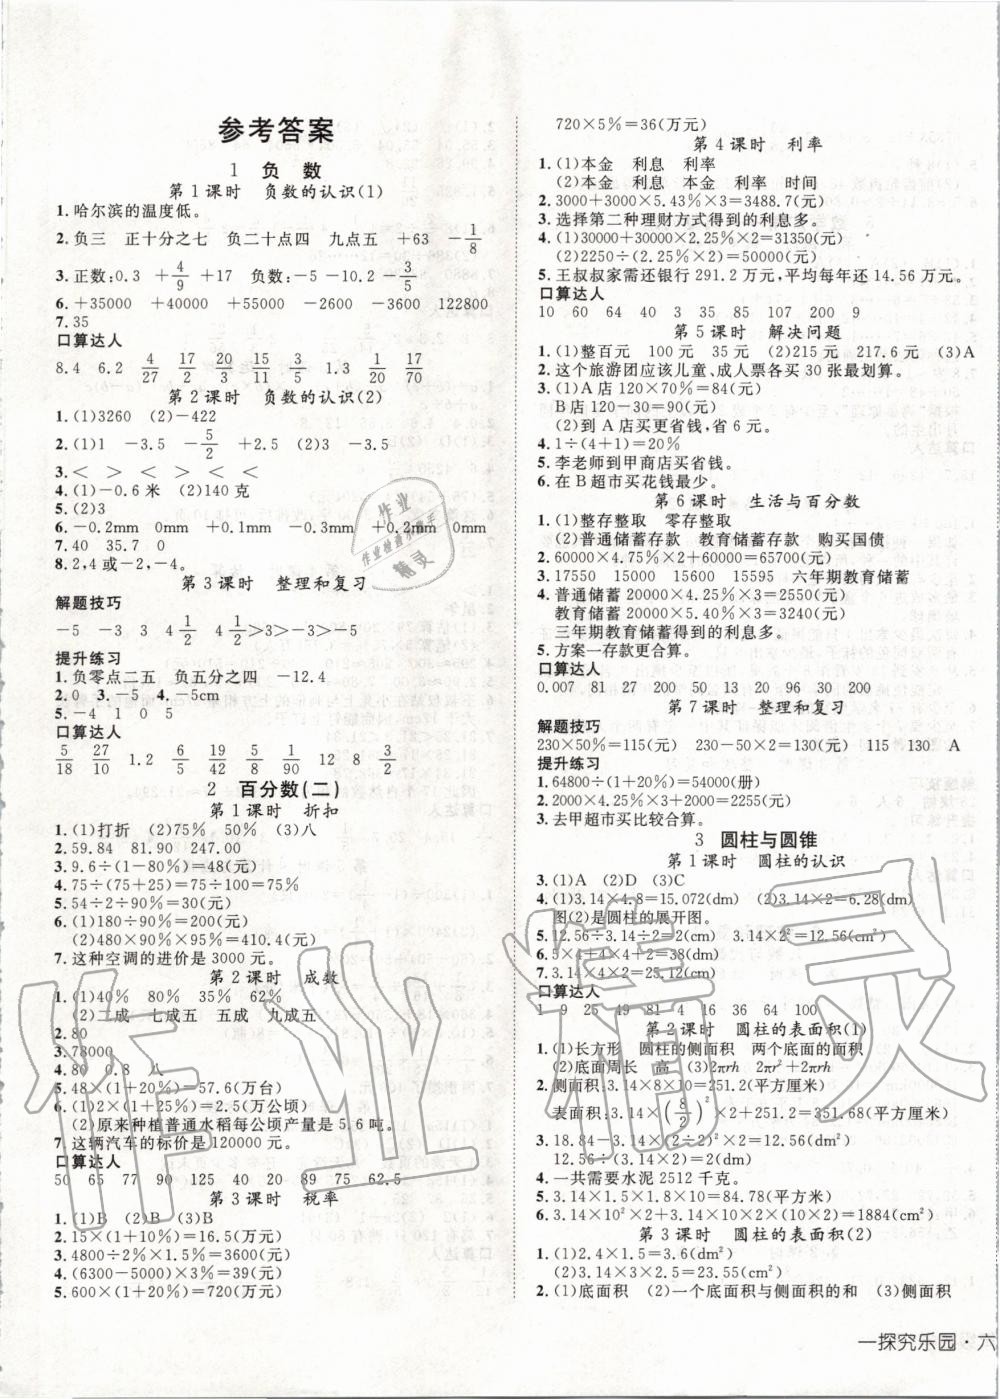 参考答案
1 负 数
第1课时 负数的认识(1)
1.哈尔滨的温度低。
2.负三 正十分之七 负二十点四 九点五 +63 -1/8
3.正数:0.3 +4/9 +17 负数:-5 -10.2 -3/5
6.+35000 +40000 +55000 -2600 -3600 122800
7.35
口算达人
8.4 6.2 4/27 17/2 20/3 15/11 3/5 1.3 17/20 4/15
第2课时 负数的认识(2)
1.(1)3260 (2)-422
2.(1)1 -3.5 -5/2 +2.5 (2)3 -3.5
3.< < > < >
4.(1)-0.6米 (2)140克
5.(2)3
6.-0.2mm 0mm +0.1mm -0.3mm +0.2mm 0mm
7.40 35.7 0
8.2,4或-2,-4。
第3课时 整理和复习
解题技巧
-5 -3 3 4 1/2 4 1/2>3>-3>-5
提升练习
1.负零点二五 负五分之四 -12.4
2.0 3.-5 4.-5cm
5.-4 1 0 5
口算达人
5/18 27/10 1.2 6/5 19/42 6 1/90 12 8 3/2
2 百分数(二)
第1课时 折扣
1.(1)打折 (2)75% 50% (3)八
2.59.84 81.90 247.00
3.9.6÷(1-80%)=48(元)
4.75÷(75+25)=75%=七五折
5.54÷2÷90%=30(元)
6.(1)180÷90%=200(元)
(2)480×90%×95%=410.4(元)
7.这种空调的进价是3000元。
第2课时 成数
1.(1)40% 80% 35% 62%
(2)二成 七成五 五成 九成五
2.80
3.78000
4.80 0.8 八
5.48×(1+20%)=57.6(万台)
6.(1)2×(1+25%)=2.5(万公顷)
(2)原来种植普通水稻每公顷产量是5.6吨。
7.这辆汽车的标价是120000元。
口算达人
50 65 77 90 125 40 20 89 75 62.5
第3课时 税率
1.(1)B (2)B (3)B
2.15×(1+10%)=16.5(万元)
3.4800÷2%×1.5%=3600(元)
4.(6300-5000)×3%=39(元)
5.600×(1+20%)=720(万元)
720×5%=36(万元)
第4课时 利率
1.(1)本金 利息 利率
(2)本金 利息 本金 利率 时间
2.3000+3000×5.43%×3=3488.7(元)
3.选择第二种理财方式得到的利息多。
4.(1)30000+30000×2.25%×2=31350(元)
(2)2250÷(2.25%×2)=50000(元)
5.王叔叔家需还银行291.2万元,平均每年还14.56万元。
口算达人
10 60 64 40 3 35 85 107 200 9
第5课时 解决问题
1.(1)整百元 100元 35元 (2)215元 217.6元 (3)A
2.这个旅游团应该儿童、成人票各买30张最划算。
3.(1)A店 120×70%=84(元)
B店120-30=90(元)
(2)到A店买更省钱,省6元。
4.1÷(4+1)=20%
5.李老师到甲商店买省钱。
6.在B超市买花钱最少。
第6课时 生活与百分数
1.(1)整存整取 零存整取
(2)普通储蓄存款 教育储蓄存款 购买国债
2.60000×4.75%×2+60000=65700(元)
3.17550 15150 15405 15595 六年期教育储蓄
4.普通储蓄20000×4.25%×3=2550(元)
教育储蓄20000×5.40%×3=3240(元)
三年期教育储蓄得到的利息多。
5.方案一存款更合算。
口算达人
0.007 81 27 200 50 13 20 96 30 200
第7课时 整理和复习
解题技巧
230×50%=115(元) 230-50×2=130(元) 115 130 A
提升练习
1.64800÷(1+20%)=54000(册)
2.2000×4.25%×3+2000=2255(元)
3.去甲超市买比较合算。
3 圆柱与圆锥
第1课时 圆柱的认识
3.(1)A (2)D (3)C
4.(1)3.14×4.8=15.072(dm) (2)3.14×2=6.28(dm)
图(2)是圆柱的展开图。
5.12.56÷3.14÷2=2(cm) 3.14×2²=12.56(cm²)
6.5×4+4×4+2=38(cm)
7.3.14×4×2=25.12(cm)
口算达人
1 9 25 49 81 4 16 36 64 100
第2课时 圆柱的表面积(1)
1.(1)长方形 圆柱的侧面积 两个底面的面积
(2)底面周长 高 (3)2πrh 2πr² 2πr²+2πrh
2.侧面积:3.14×8×10=251.2(平方厘米)
表面积:3.14×(8/2)²×2+251.2=351.68(平方厘米)
3.18.84-3.14×(2÷2)²×2=12.56(dm²)
12.56÷(3.14×2)=2(dm)
4.一共需要水泥2512千克。
5.3.14×2×1.5×9=84.78(平方米)
6.3.14×10²×2+3.14×10×2×(10×2)=1884(cm²)
第3课时 圆柱的表面积(2)
1.(1)2.4×1.5=3.6(dm²)
(2)3.14×3×2.5=23.55(cm²)
2.(1)底面积 (2)一个底面积与侧面积的和 (3)侧面积
一探究乐园·六
作业精灵